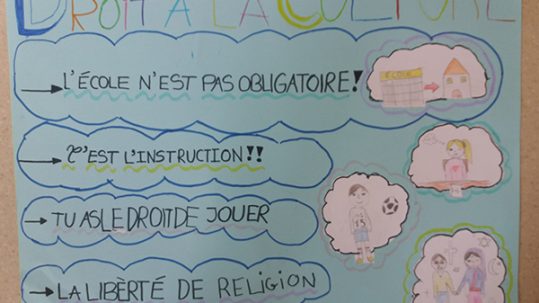 DROIT À LA CULTURE
L'ÉCOLE N'EST PAS OBLIGATOIRE!
ÉCOLE
C'EST L'INSTRUCTION!!
TU AS LE DROIT DE JOUER
15
LA LIBÈRTÉ DE RELIGION